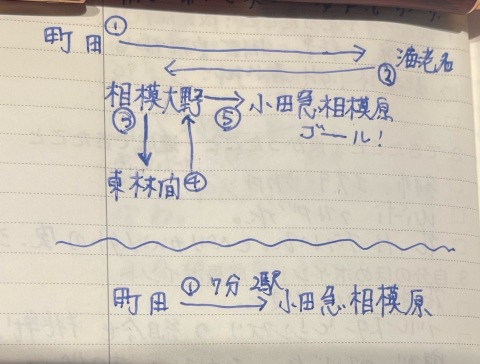 町田 ① 海老名
②
相模大野 ⑤ 小田急相模原
③ ゴール!
東林間 ④
町田 ① 7分 2駅 小田急相模原